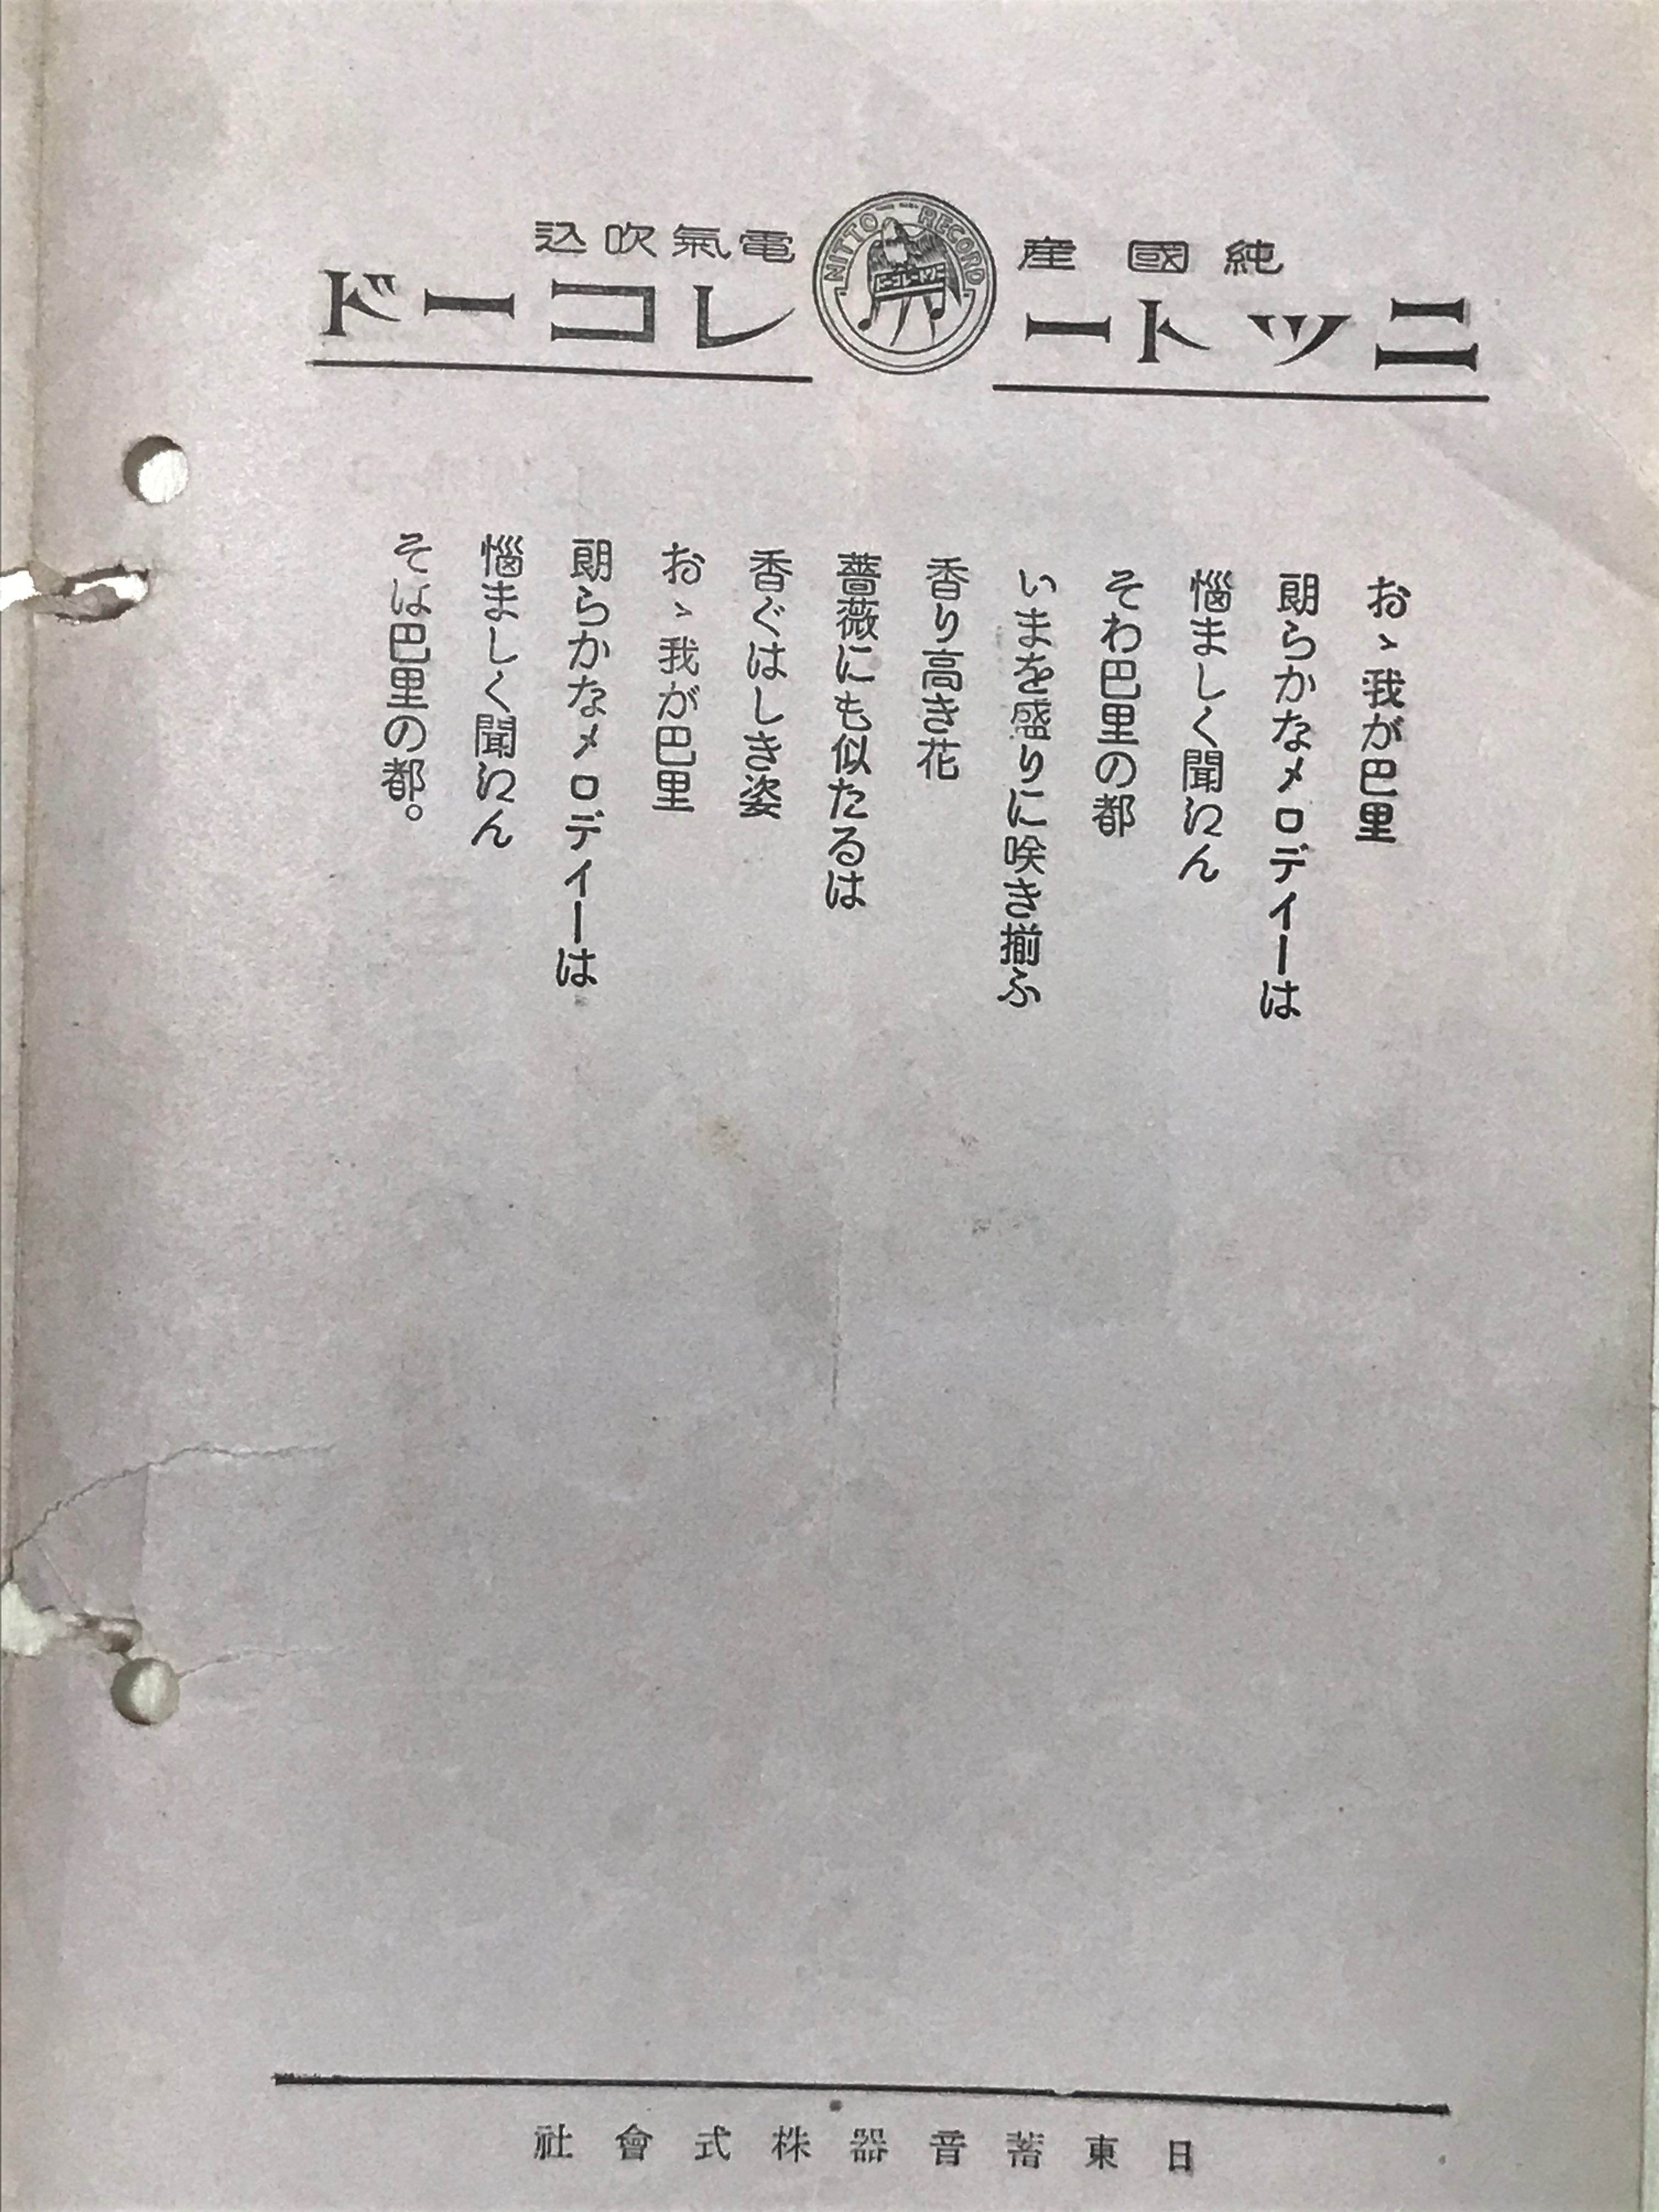 純國産
電氣吹込
ニットー
NITTO RECORD
レコード
おゝ我が巴里
朗らかなメロデイーは
悩ましく聞江ん
そわ巴里の都
いまを盛りに咲き揃ふ
香り高き花
薔薇にも似たるは
香ぐはしき姿
おゝ我が巴里
朗らかなメロデイーは
悩ましく聞江ん
そは巴里の都。
日東蓄音器株式會社